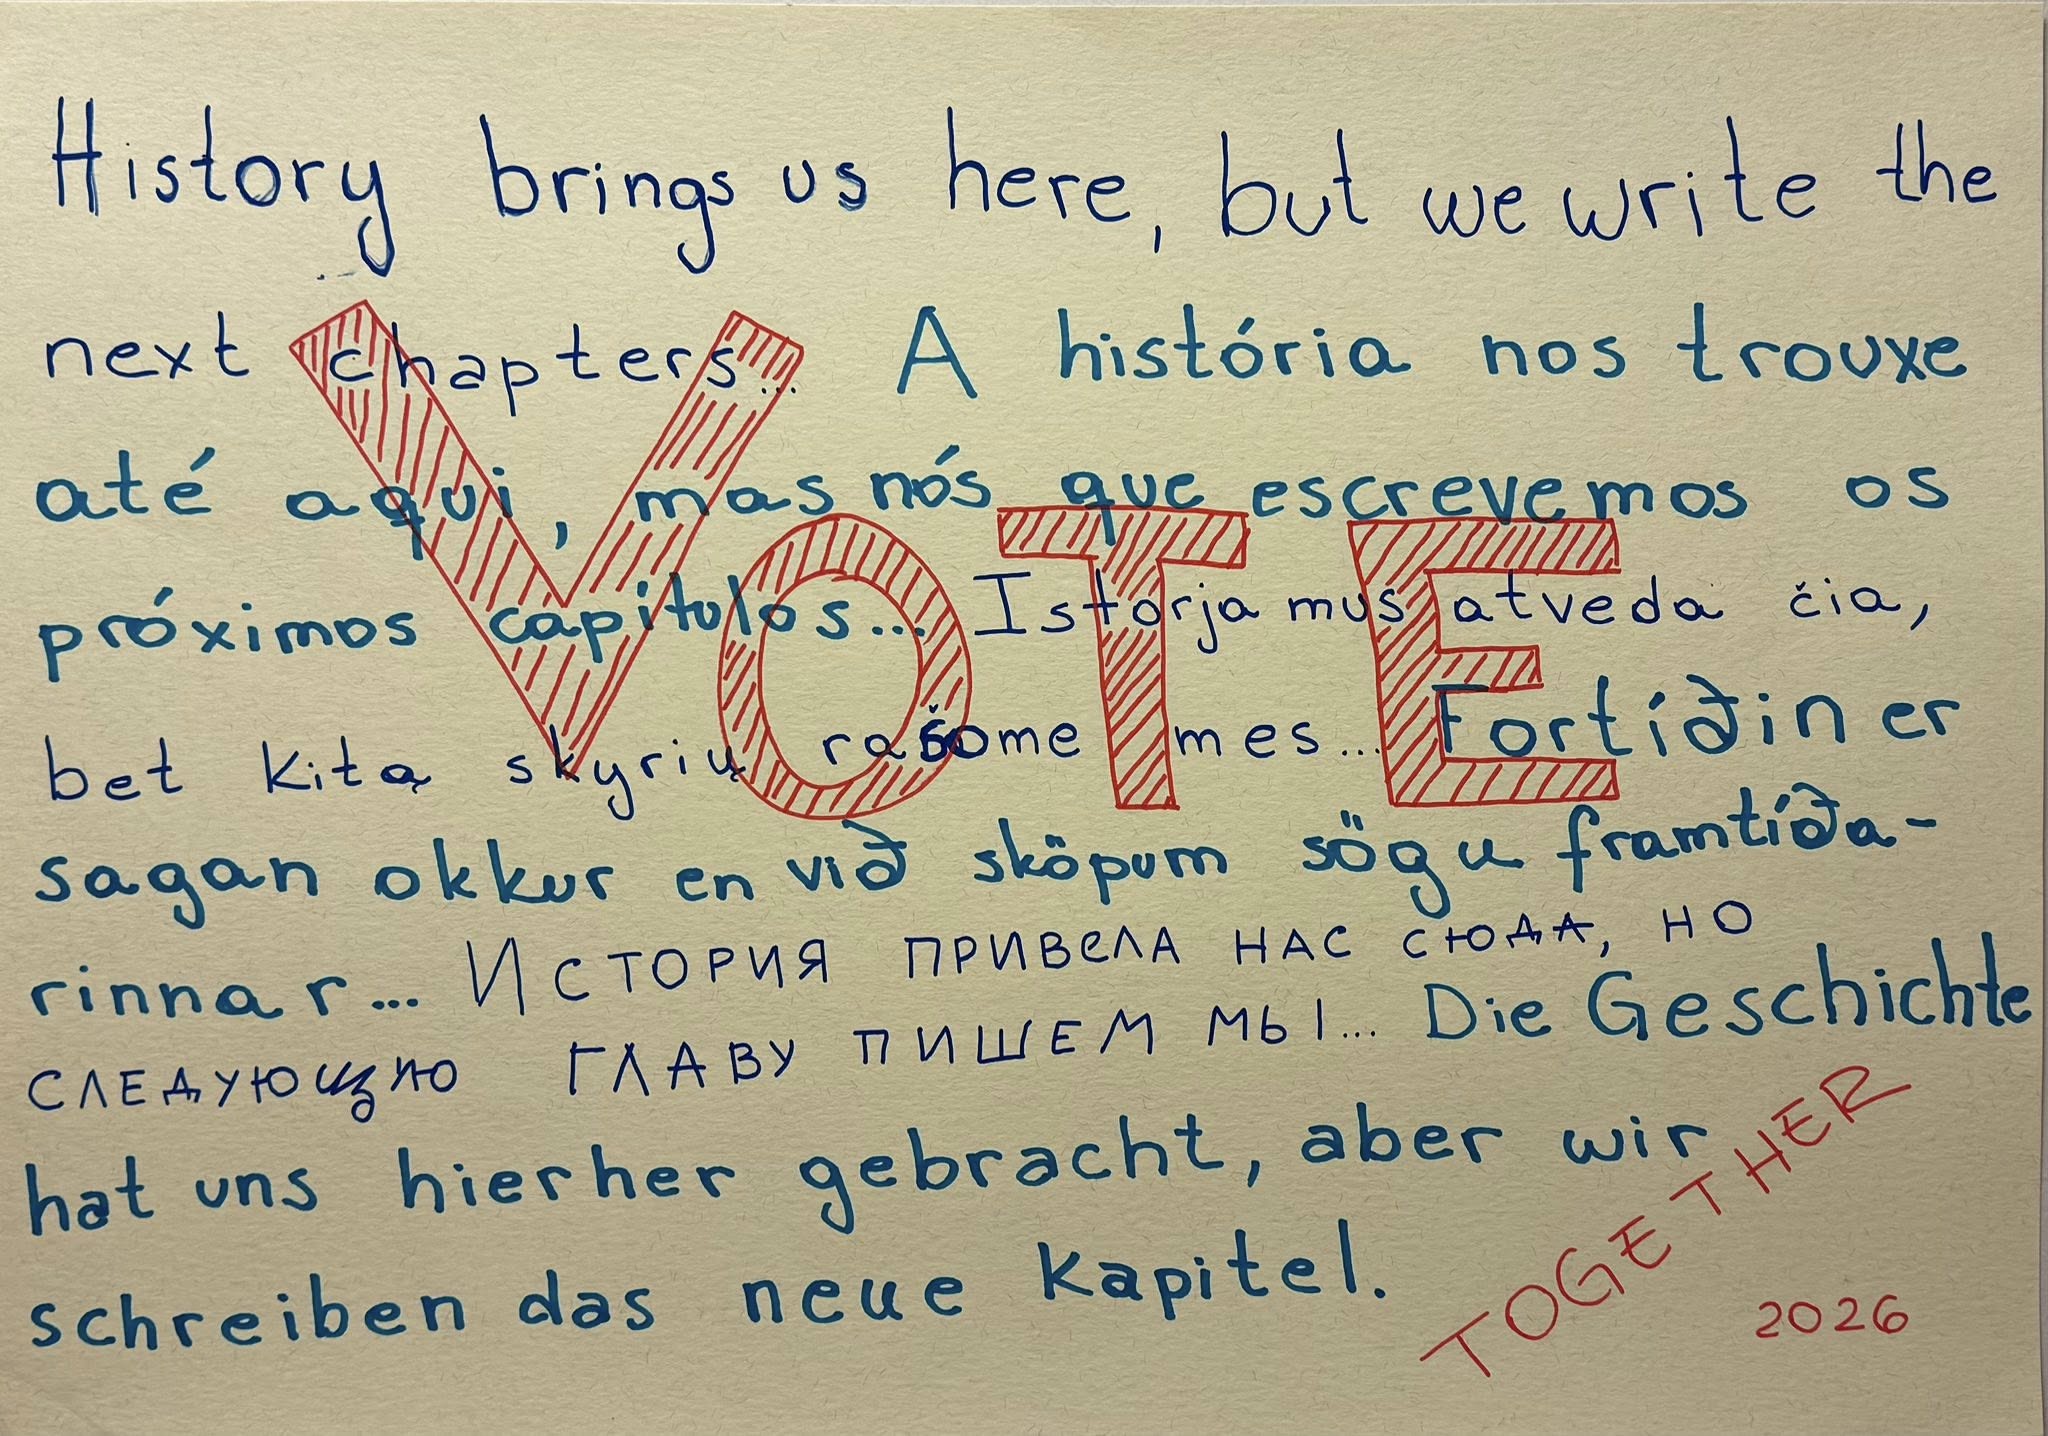 History brings us here, but we write the
next chapters... A história nos trouxe
até aqui, mas nós que escrevemos os
próximos capítulos... Istorja mus atveda čia,
bet kitą skyrių rašome mes... Fortíðin er
sagan okkur en við sköpum sögu framtíða-
rinnar... История привела нас сюда, но
следующую главу пишем мы... Die Geschichte
hat uns hierher gebracht, aber wir
schreiben das neue Kapitel.
VOTE
TOGETHER
2026